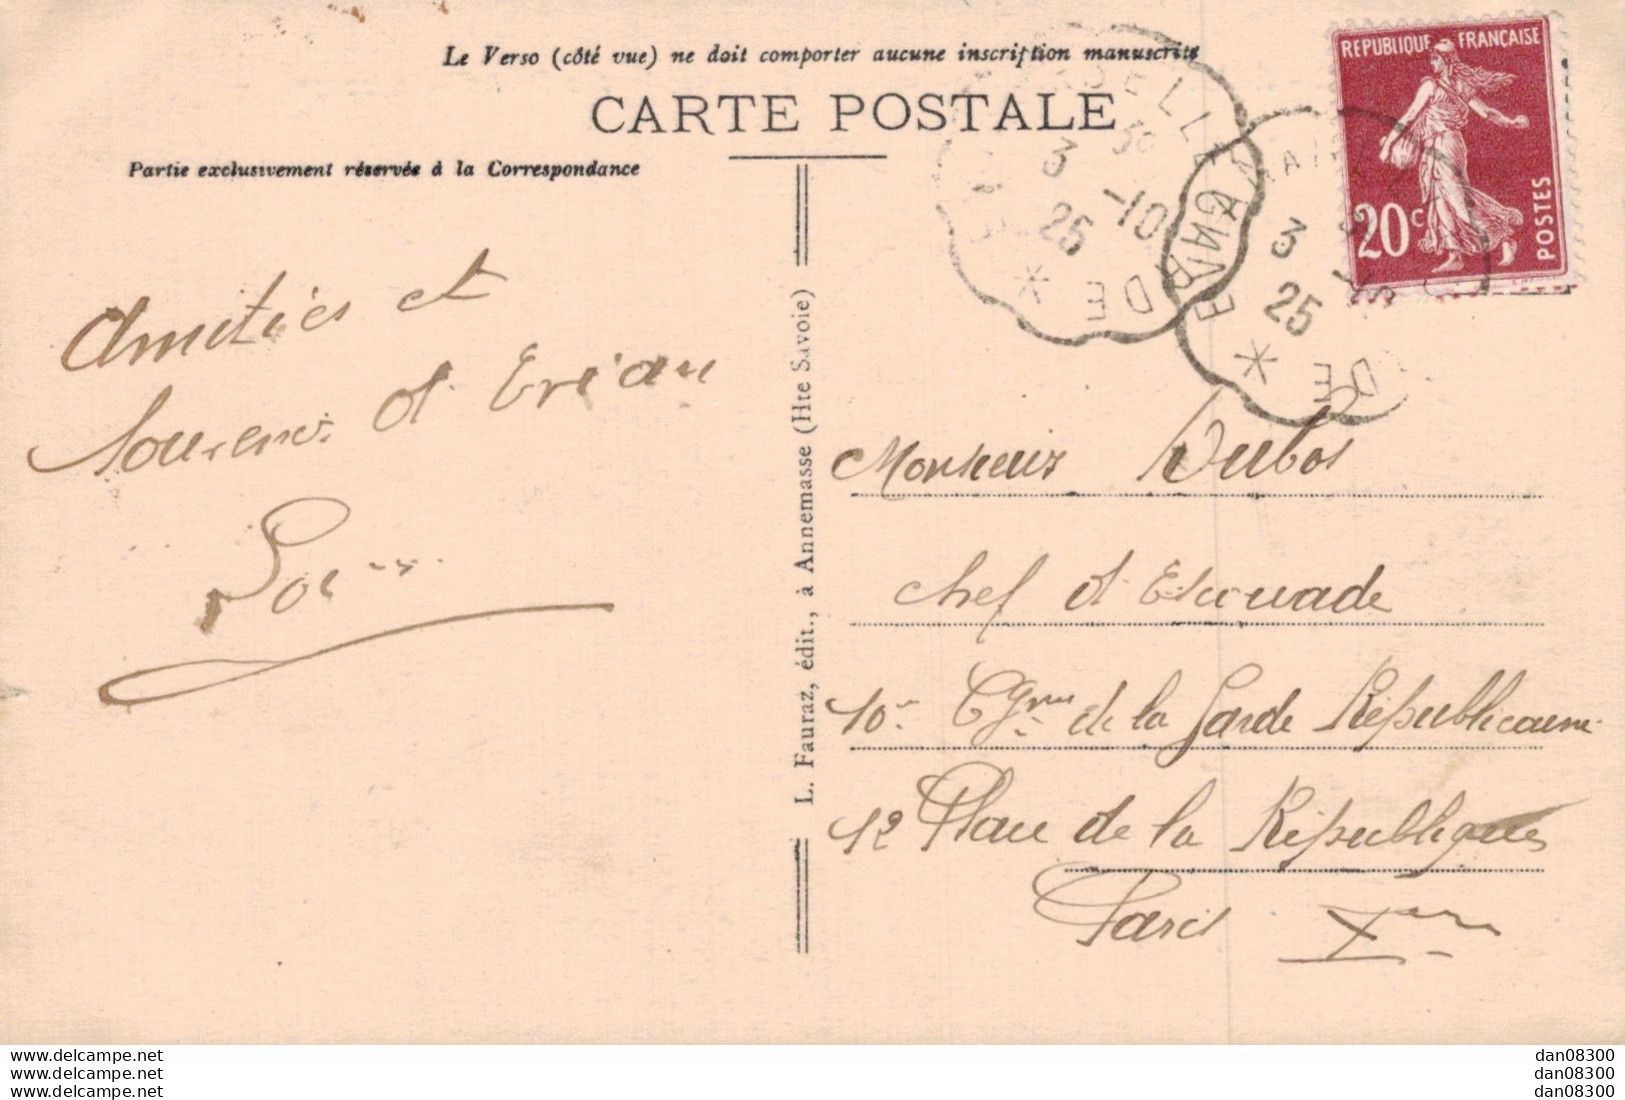 Le Verso (côté vue) ne doit comporter aucune inscription manuscrite
CARTE POSTALE
Partie exclusivement réservée à la Correspondance
REPUBLIQUE FRANÇAISE
20c
POSTES
3 -10
25
3
25
DE
GARE
DE
Amitiés et
Souvenirs d'Evian
L. Fauraz, édit., à Annemasse (Hte Savoie)
Monsieur Dubos
Chef d'Escouade
10e Cgnie de la Garde Républicaine
12 Place de la République
Paris Xme
www.delcampe.net
www.delcampe.net
www.delcampe.net
dan08300
dan08300
dan08300